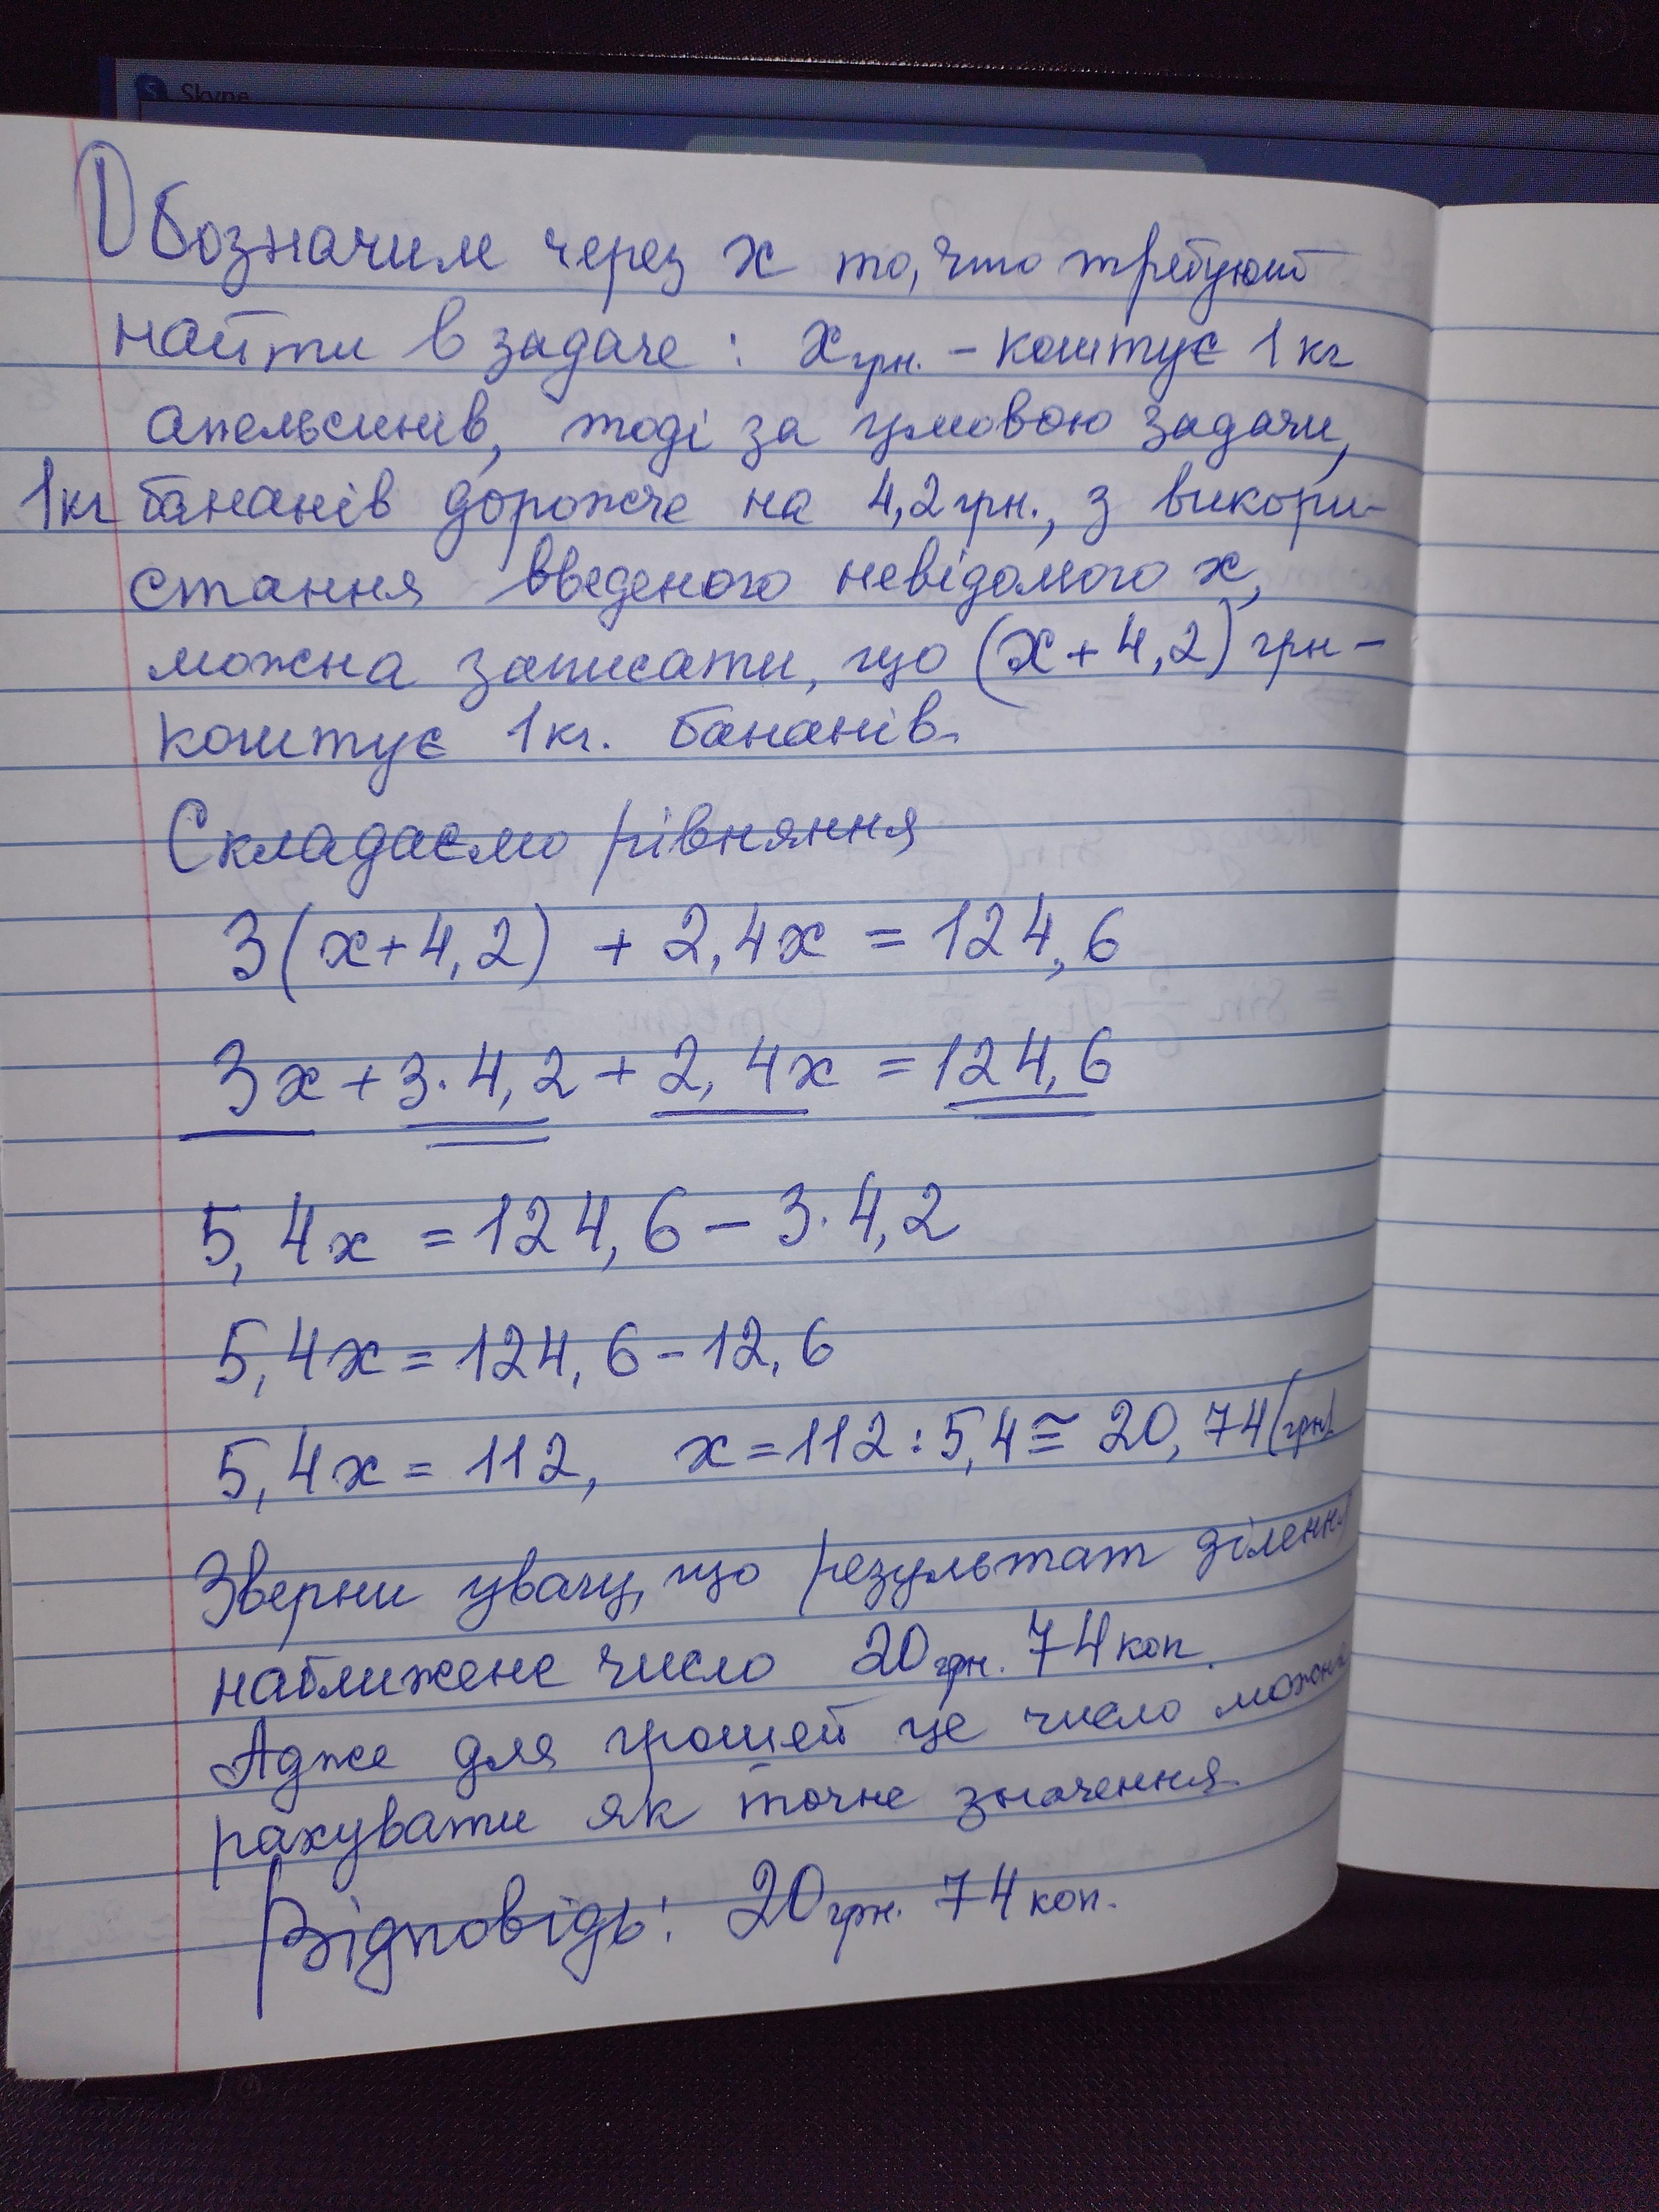 Skype
Обозначим через x то, что требуют
найти в задаче : x грн. – коштує 1 кг
апельсинів, тоді за умовою задачи,
1кг бананів дорожче на 4,2 грн., з викори-
стання введеного невідомого x,
можна записати, що (x + 4,2) грн –
коштує 1 кг. бананів.
Складаємо рівняння
3(x+4,2) + 2,4x = 124,6
3x + 3·4,2 + 2,4x = 124,6
5,4x = 124,6 – 3·4,2
5,4x = 124,6 – 12,6
5,4x = 112, x = 112 : 5,4 ≅ 20,74 (грн)
Зверни увагу, що результат ділення
наближене число 20 грн. 74 коп.
Адже для грошей це число можна
рахувати як точне значення.
Відповідь: 20 грн. 74 коп.